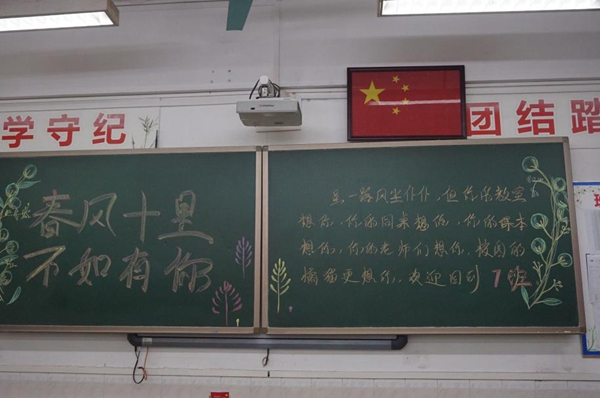 学守纪
团结踏
春风十里
不如有你
一路风尘仆仆,但你的教室
想你,你的同桌想你,你的课本
想你,你的老师们想你,校园的
橘猫更想你,欢迎回到7班